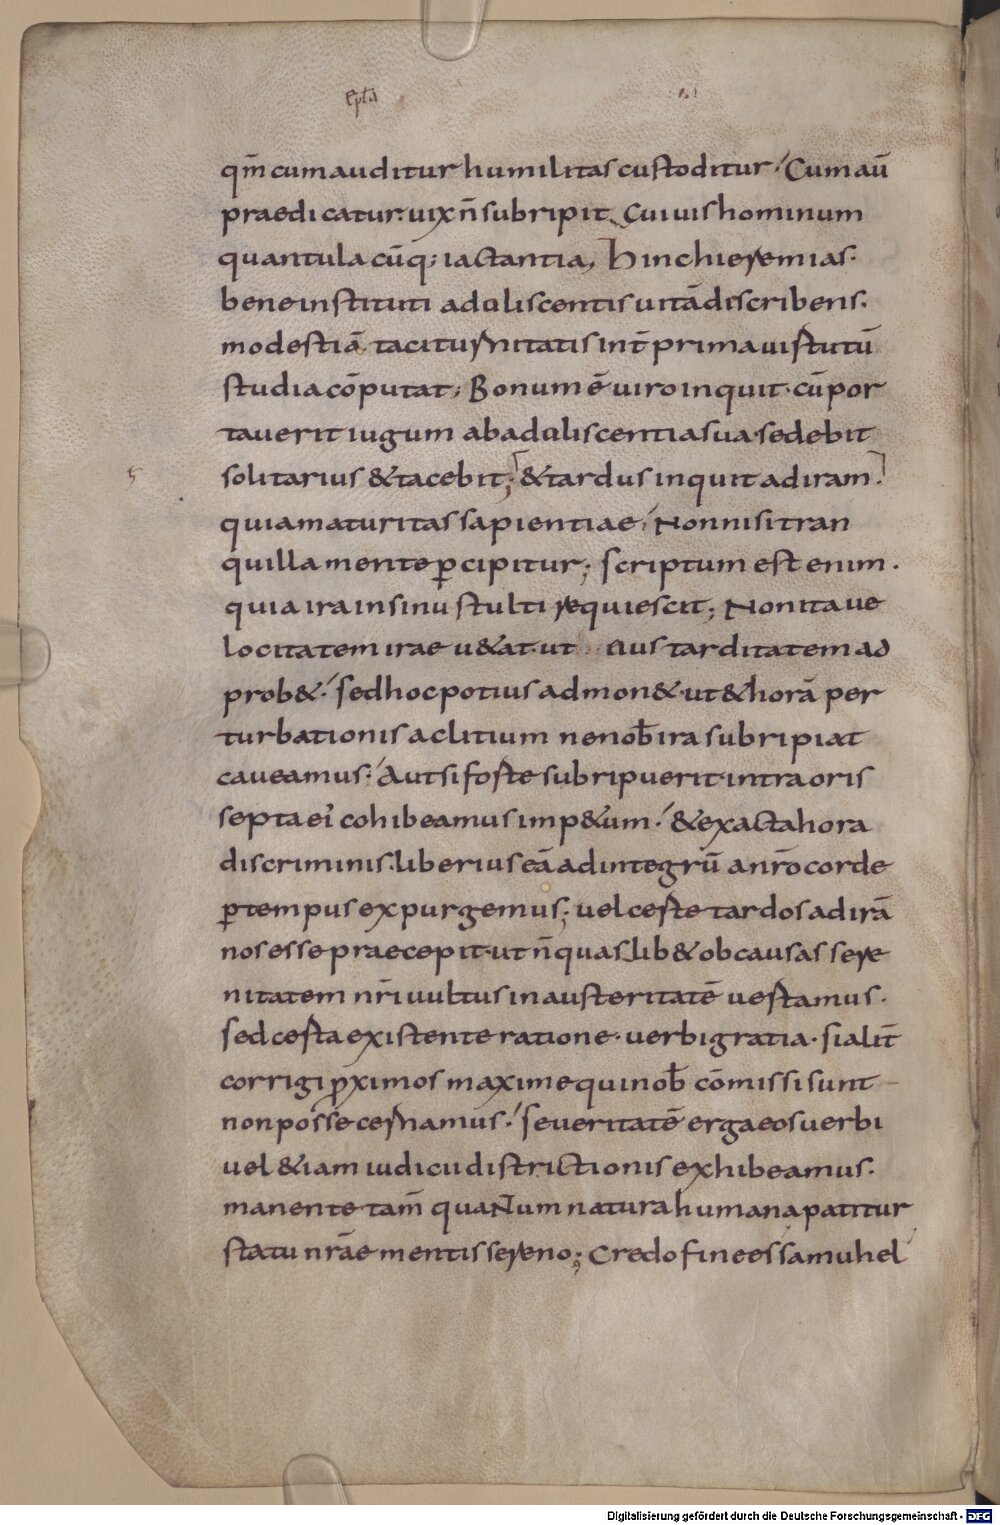 epłа
qm̄ cum auditur humilitas custoditur· Cum aū
praedicatur· uix n̄ subripit cuiuis hominum
quantulacūq; iactantia, hinc hieremias·
bene instituti aduliscentis uitā discribens·
modestiā taciturnitatis int̄ prima uirtutū
studia cōputat; Bonum ē uiro inquit· cū por
tauerit iugum ab aduliscentia sua· sedebit
solitarius & tacebit; & tardus inquit ad iram·
quia maturitas sapientiae· Non nisi tran
quilla mente ꝑcipitur; scriptum est enim·
quia ira in sinu stulti requiescit; Non ita ue
locitatem irae u&at· ut eius tarditatem ad
prob&· sed hoc potius admon&· ut & horā per
turbationis aclitium ne nob̄ ira subripiat
caueamus· Aut si forte subripuerit· intra oris
septa ei cohibeamus imp&um· & exacta hora
discriminis· liberius eā ad integrū a nr̄o corde
ꝑ tempus expurgemus; uel certe tardos ad irā
nos esse praecepit· ut n̄ quaslib& ob causas sere
nitatem nr̄i uultus in austeritatē uertamus·
sed certa existente ratione· uerbi gratia· si alit̄
corrigi ꝓximos maxime qui nob̄ cōmissi sunt
non posse cernamus· seueritatē erga eos uerbi
uel &iam iudicii districtionis exhibeamus·
manente tam̄ quantum natura humana patitur
statu nrāe mentis sereno; Credo finees samuhel
Digitalisierung gefördert durch die Deutsche Forschungsgemeinschaft - DFG